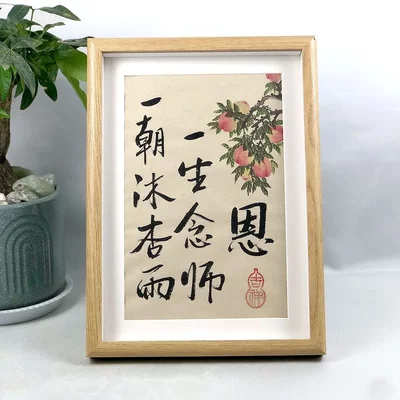 一朝沐杏雨
一生念师
恩